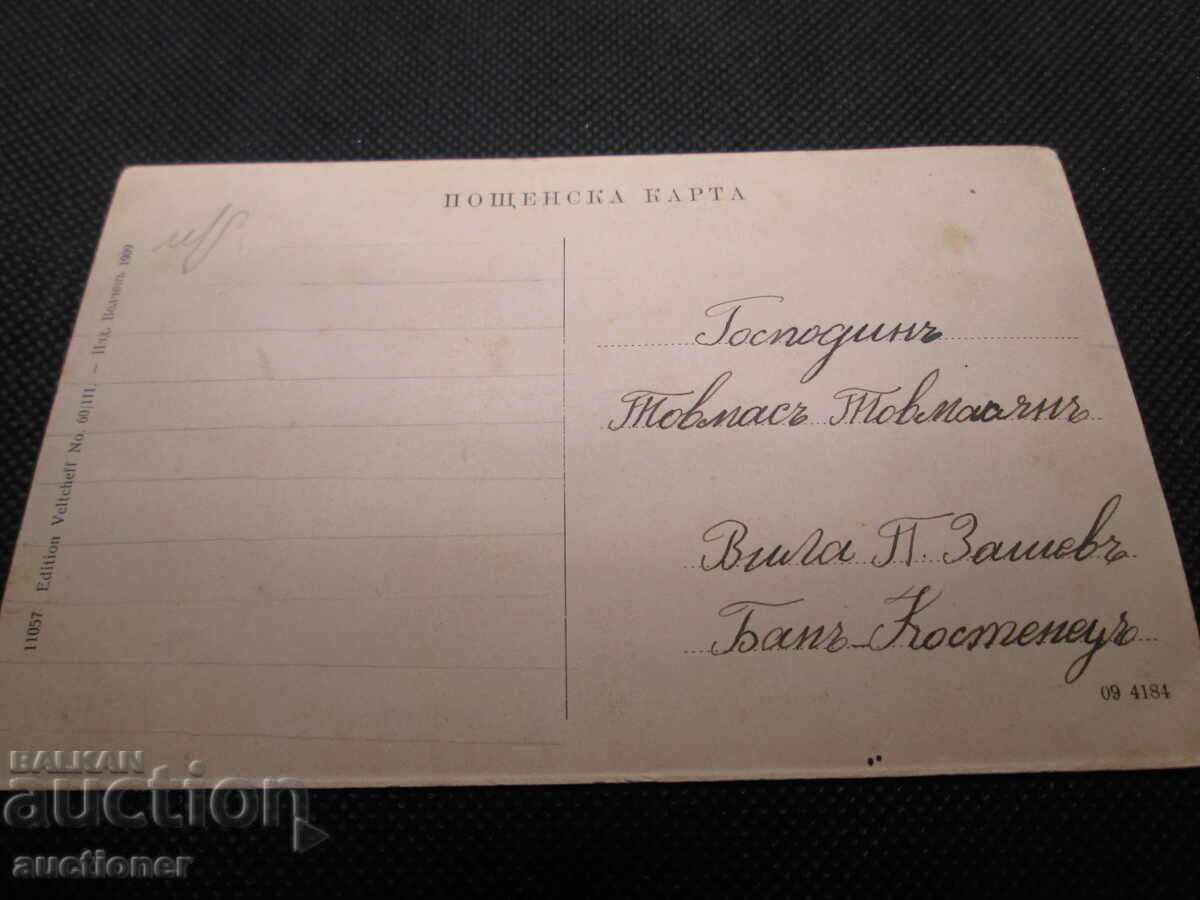 ПОЩЕНСКА КАРТА
Господинъ
Товмасъ Товмасянъ
Вила П. Зашевъ
Банъ-Костенецъ
09 4184
11057 Edition Veltcheff No. 60/III. – Изд. Велчевъ 1909
BALKAN
auction
auctioner